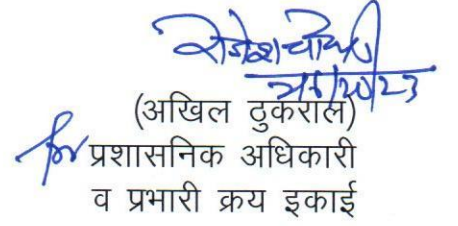 राजेश चौधरी
(अखिल ठुकराल)
for प्रशासनिक अधिकारी
व प्रभारी क्रय इकाई